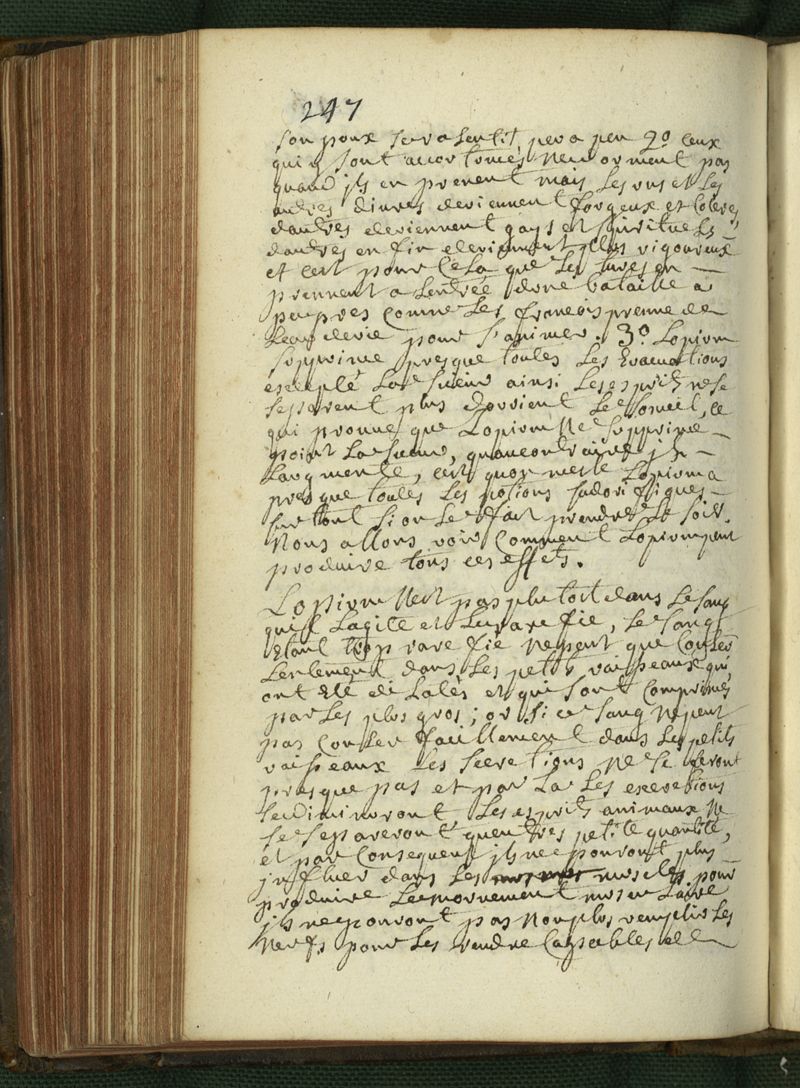 247
son poux se ralentit peu a peu 2o ceux
qui y sont accoutumés ne dorment pas
quand jls en prenent mais les uns et les
autres divres deviennent fougeux et Coleres
dautres deviennent gays et spirituels
dautres en fin deviennent plus vigoureux
et cest pour Cela que les turcs en
prennent a lentrée dune bataille a
peu pres Comme les francois prenne de
leau devie pour s'animer. 3o Lopium
supprime presque toutes les Evacuations
excepté La sueur ainsi les esprits ne se
separent plus dou vient le someil, ce
qui prouve que Lopium Ne supprime
point La sueur, quaucontraire jl
Laugmente, cest quon mesle Lopium a
presque toutes les potions sudorifiques
sur tout si on le fait prendre le soir.
Nous allons voir Comment Lopium peut
produire tous ces effets.
Lopium Nest pas plutost dans le sang
quil Lagite et Lerarefie, le sang
Etant trop rarefié Nepeut que Couler
Lentement dans les petits vaisseaux qui
ont Eté dilatés et qui sont Comprimés
par les plus gros; or si ce sang Nepeut
pas Couler facillement dans les petits
vaisseaux les secretions Ne se feront
presque pas et par La les excretions
se diminuront, les esprits animaux Ne
se separeront quen tres petite quantité,
et par Consequent jls ne pouront plus
jnfluer dans les muscles pour
produire le mouvement musculaire
jls ne pouront pas Non plus remplir les
Nerfs pour les rendre Capables de